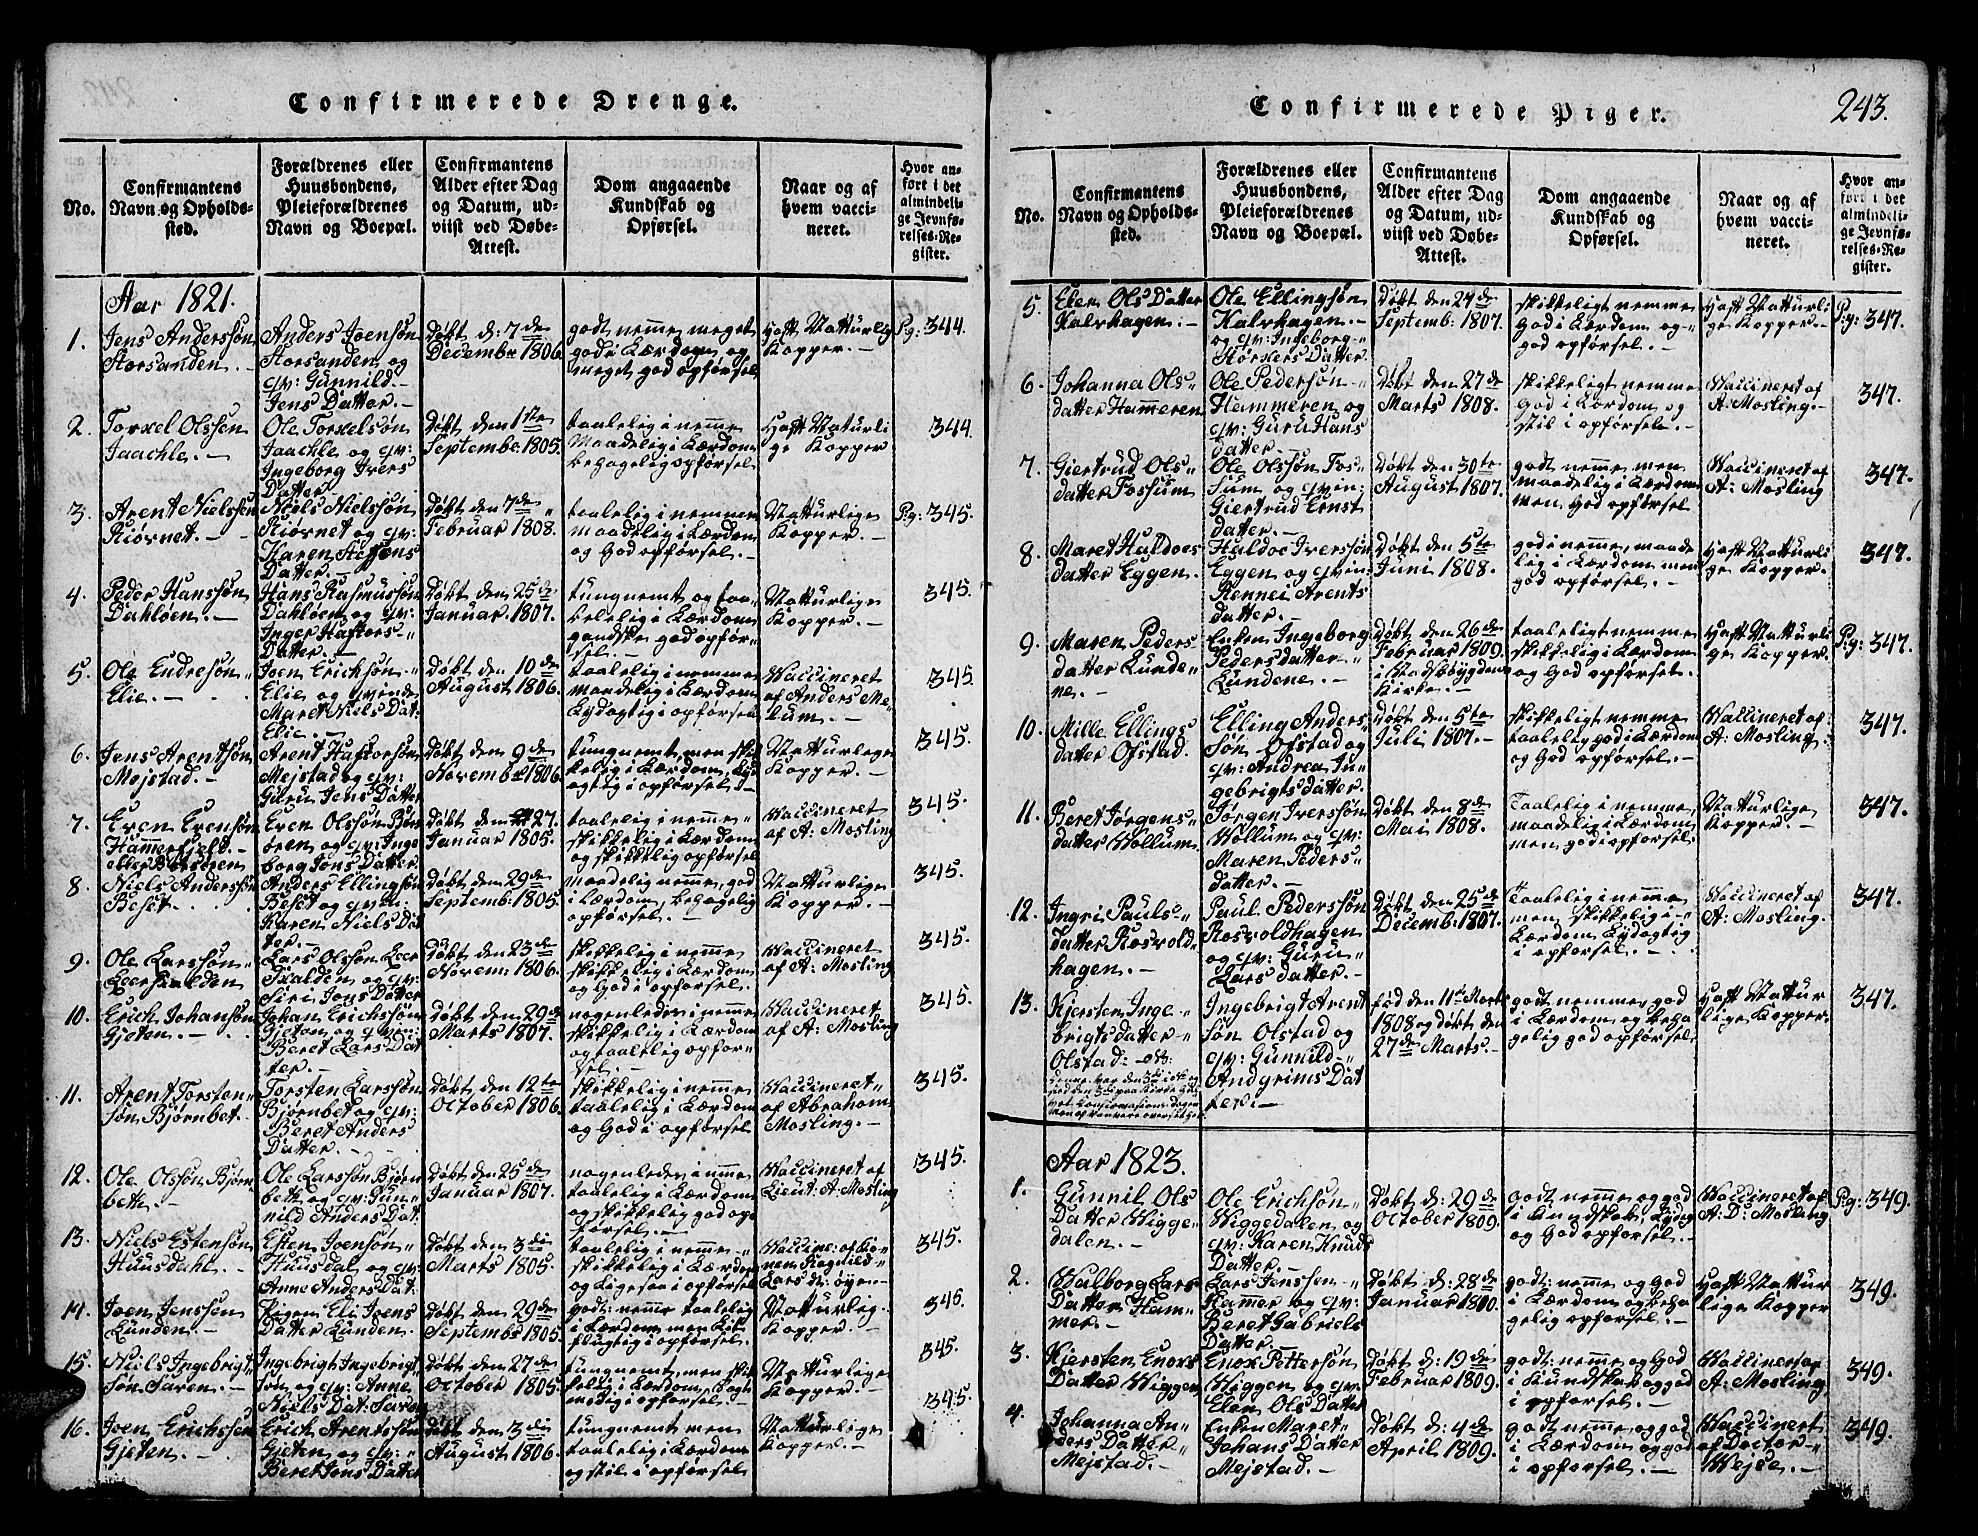 Confirmerede Drenge.
No.
Confirmantens
Navn og Opholds-
sted.
Forældrenes eller
Huusbondens,
Pleieforældrenes
Navn og Boepæl.
Confirmantens
Alder efter Dag
og Datum, ud-
viist ved Døbe-
Attest.
Dom angaaende
Kundskab og
Opførsel.
Naar og af
hvem vacci-
neret.
Hvor an-
ført i det
almindeli-
ge Jevnfø-
relses-Re-
gister.
Aar 1821.
1.
Jens Anderssøn
Storsanden. -
Anders Joensøn
Storsanden og
qv: Gunnild. -
Jens Datter. -
Døbt d: 7de
December 1806.
godt nemme meget
god i Lærdom, og
meget god opførsel
Haft Naturlig
Kopper. -
Pg: 344.
2.
Torkel Olssøn
Jaachle. -
Ole Torkelsøn
Jaachle og qv:
Ingeborg Ivers
Datter
Døbt den 1ste
Septembr. 1805.
taalelig i nemme
Maadelig i Lærdom
behagelig opførsel
Haft Naturli
ge Kopper
344.
3.
Arent Nielssøn
Kiørnet. -
Niels Nielssøn
Kiørnet og qv:
Karen Steffens
Datter. -
Døbt den 7de
Februar 1808.
taalelig i nemme
maadelig i Lærdom
og God opførsel. -
Naturlige
Kopper. -
Pg: 345.
4.
Peder Hanssøn
Dahløen. -
Hans Rasmussøn
Dahløen og qv:
Inger Haftors-
Datter. -
Døbt den 25de
Januar 1807.
tungnemt og taa-
lelig i Lærdom
gandske god opfør-
sel. -
Naturlige
Kopper. -
345.
5.
Ole Endresøn
Elie. -
Joen Erichsøn
Elie og qvinde
Maret Niels Dat:
Elie. -
Døbt den 10de
August 1806.
taalelig i nemme
maadelig i Lærdom
Lydagtig i opførsel
Vaccineret
af Anders Me-
lum. -
345.
6.
Jens Arentsøn
Mejstad. -
Arent Haftorsøn
Mejstad og qv:
Guru Jens Datter
Døbt den 9de
Novembr 1806.
tungnemt, men skik
kelig i Lærdom, Lyd
agtig i opførsel -
Naturlige
Kopper. -
345.
7.
Even Evensøn
Hamerhield.
Even Olssøn
og qv: Inge
borg Jons Datter
Døbt den 27.
Januar 1805.
taalelig i nemme
skikkelig i Lærdom
og skikklig opførsel
Vaccineret
af A: Mosling
345.
8.
Niels Anderssøn
Beset. -
Anders Ellingsøn
Beset og qvin:
Karen Niels Da
ter. -
Døbt den 29de
Septemb: 1805.
maadelig nemme, god
i Lærdom, behagelig
opførsel. -
Naturlige
Kopper. -
345.
9.
Ole Larssøn
Leerskalden
Lars Olssøn Leer
skalden og qv:
Siri Jons Datter
Døbt den 23de
Novem: 1806.
skikkelig i nemme
skikkelig i Lærdom
og God i opførsel. -
Vaccineret
af A: Mosling
345.
10.
Erich Johansøn
Gjeten. -
Johan Erichssøn
Gjeten og qvin:
Beret Lars Dat
ter. -
Døbt den 29de
Marts 1807.
nogenledes i nemme
skikkelig i Lærdom
og taalelig opfør-
sel. -
Vaccineret
af A: Mosling
345.
11.
Arent Torsten-
søn Bjørnbet. -
Torsten Larssøn
Bjørnbet og qv:
Beret Anders
Datter. -
Døbt den 12te
October 1806.
skikkelig i nemme
taalelig i Lærdom
og God i opførsel
Vaccineret
af Abraham
Mosling. -
345.
12.
Ole Olssøn Bjørn
beth. -
Ole Larssøn Bjørn
beth og qv: Gun-
nild Anders Dat.
Døbt den 25de
Januar 1807.
nogenledes i nemme
taalelig i Lærdom
og skikkelig god op
førsel. -
Vaccineret af
Lieut: A: Mosling
345.
13.
Niels Estensøn
Huusdahl. -
Esten Joensøn
Huusdal og qv:
Anne Anders Dat:
Døbt den 3die
Marts 1805.
taalelig i nemme
skikkelig i Lærdom
og Ligesaa i opførsel
Vaccine: af Ko-
nen Ragnild
Lars d: øyen-
345.
14.
Joen Jenssøn
Lunden. -
Pigen Eli Joens
Datter Lunden.
Døbt den 29de
Septembr 1805.
godt nemme taalelig
i Lærdom men
flygtig i opførsel.
Naturlig.
Kopper. -
345.
15.
Niels Ingebrigt-
søn Saren. -
Ingebrigt Ingebrigt
søn og qv: Anne
Niels Dat: Saren
Døbt den 27de
October 1805.
tungnemt, men skik
kelig i Lærdom, Sagt
modig i opførsel.
Naturlige
Kopper. -
345.
16.
Joen Erichssøn
Gjeten. -
Erich Arentssøn
Gjeten og qv:
Beret Jons Datter
Døbt den 3die
August 1806.
tungnemt men
taalelig i Lærdom
og stil i opførsel. -
Naturlige
Kopper. -
345.
Confirmerede Piger.
243.
No.
Confirmantens
Navn og Opholds-
sted.
Forældrenes eller
Huusbondens,
Pleieforældrenes
Navn og Boepæl.
Confirmantens
Alder efter Dag
og Datum, ud-
viist ved Døbe-
Attest.
Dom angaaende
Kundskab og
Opførsel.
Naar og af
hvem vacci-
neret.
Hvor an-
ført i det
almindeli-
ge Jevnfø-
relses-Re-
gister.
5.
Elen Ols Datter
Kalvhagen. -
Ole Ellingsøn
Kalvhagen. -
og qv: Ingeborg-
Storkers Datter.
Døbt den 24de
Septemb: 1807.
skikkeligt nemme
God i Lærdom og
god opførsel. -
Haft Naturli
ge Kopper. -
Pg: 347.
6.
Johanna Ols-
datter Hammeren
Ole Pedersøn
Hammeren og
qv: Guru Hans
datter. -
Døbt den 27de
Marts 1808.
skikkeligt nemme
God i Lærdom og
stil i opførsel. -
Vaccineret af
A: Mosling. -
347.
7.
Giertrud Ols-
datter Fossum
Ole Olssøn Fos-
sum og qvin:
Giertrud Ernst
datter. -
Døbt den 30te
August 1807.
godt nemme men
maadelig i Lærdom
men God opførsel
Vaccineret af
A: Mosling
347.
8.
Maret Haldoes
datter Eggen.
Haldoe Iverssøn
Eggen og qvin:
Rennei Arents
datter. -
Døbt den 5te
Juni 1808.
god i nemme, maade
lig i Lærdom men
god opførsel. -
Haft Naturli
ge Kopper. -
347.
9.
Maren Peders
datter Lunde-
ne. -
Enken Ingeborg
Pedersdatter
Lundene. -
Døbt den 26de
Februar 1809.
i Stadsbøygdens
Kirke. -
taaleligt nemme
skikkelig i Lærdom
og God opførsel.
Haft Naturli
ge Kopper.
Pg: 347.
10.
Mille Ellings
datter Ofstad.
Elling Anders-
søn Ofstad og
qv: Andrea In-
gebrigtsdatter.
Døbt den 5te
Juli 1807. -
skikkeligt nemme
taalelig god i Lærdom
og God opførsel.
Vaccineret af
A: Mosling.
347.
11.
Beret Jørgens-
datter Wollum
Jørgen Iverssøn
Wollum og qv:
Maren Peders-
datter. -
Døbt den 8de
Mai 1808.
Taalelig i nemme,
maadelig i Lærdom,
men god i opførsel
Naturlige
Kopper. -
347.
12.
Ingri Pauls-
datter Rosvold-
hagen. -
Paul Pederssøn
Rosvoldhagen
og qv: Guru-
Lars datter. -
Døbt den 25de
Decemb: 1807.
Taalelig i nemme
men skikkelig i
Lærdom Lydagtig
i opførsel. -
Vaccineret af
A: Mosling.
347.
13.
Kjersten Inge-
brigtsdatter-
Olstad:
Ingebrigt Arent
søn Olstad og
qv: Gunnild-
Andgrims Dat
ter. -
fød den 11te Marts
1808 og døbt den
27de Marts. -
godt nemme, god
i Lærdom og beha
gelig god opførsel
Haft Natur
lige Kopper.
347.
Aar 1823.
1.
Gunnil Ols
Datter Wigge-
dalen. -
Ole Erichsøn
Wiggedalen og
qv: Karen Knuds
Datter. -
Døbt d: 29de
October 1809.
godt nemme og god
i Kundskab, Lydig
og God opførsel. -
Vaccineret af
A: D: Mosling
Pg: 349.
2.
Walborg Lars
Datter Ham-
mer. -
Lars Jenssen
Hammer og qv:
Beret Gabriels
Datter. -
Døbt d: 28de
Januar 1810.
godt nemme og God
i Lærdom og beha
gelig opførsel. -
Haft Natur
lige Kopper
349.
3.
Kjersten Enoxs
Datter Wiggen
Enox Pettersøn
Wiggen og qv:
Elen Ols Datter
Døbt d: 19de
Februar 1809.
godt nemme og God
i Kundskab og god
i opførsel. -
Vaccineret af
A: Mosling.
349.
4.
Johanna An-
ders Datter
Mejstad. -
Enken Maret-
Johans Datter
Mejstad. -
Døbt d: 4de
April 1809.
godt nemme, og god
i Lærdom og god
i opførsel. -
Vaccinert
af Doctor-
Wejse. -
349.